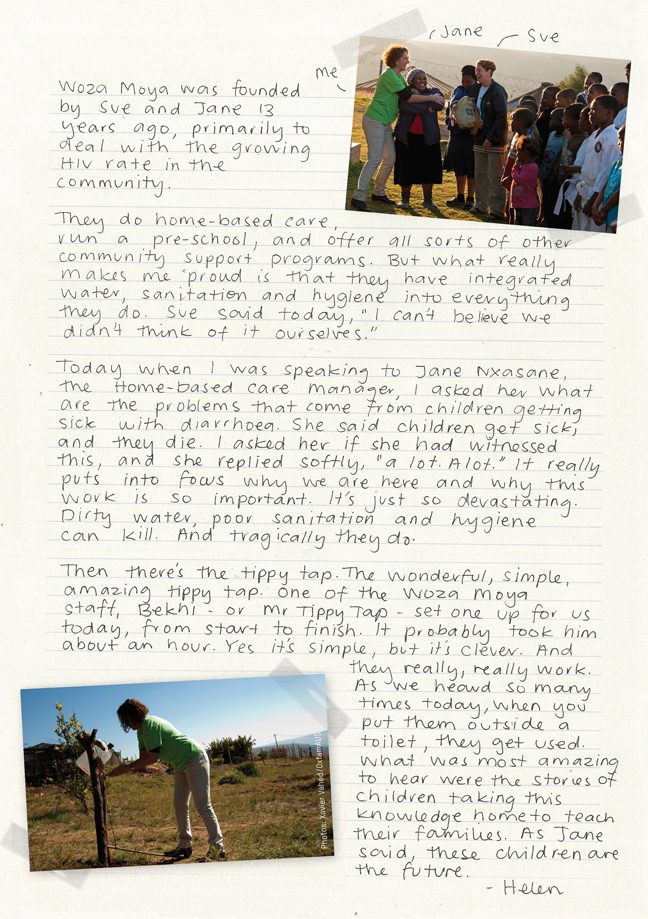 Jane Sue
me
Woza Moya was founded
by Sue and Jane 13
years ago, primarily to
deal with the growing
HIV rate in the
community.
They do home-based care,
run a pre-school, and offer all sorts of other
community support programs. But what really
makes me proud is that they have integrated
water, sanitation and hygiene into everything
they do. Sue said today, "I can't believe we
didn't think of it ourselves."
Today when I was speaking to Jane Nxasane,
the Home-based care manager, I asked her what
are the problems that come from children getting
sick with diarrhoea. She said children get sick,
and they die. I asked her if she had witnessed
this, and she replied softly, "a lot. A lot." It really
puts into focus why we are here and why this
work is so important. It's just so devastating.
Dirty water, poor sanitation and hygiene
can kill. And tragically they do.
Then there's the tippy tap. The wonderful, simple,
amazing tippy tap. One of the Woza Moya
staff, Bekhi - or Mr Tippy Tap - set one up for us
today, from start to finish. It probably took him
about an hour. Yes it's simple, but it's clever. And
they really, really work.
As we heard so many
times today, when you
put them outside a
toilet, they get used.
What was most amazing
to hear were the stories of
children taking this
knowledge home to teach
their families. As Jane
said, these children are
the future.
- Helen
Photos: Xavier Vahed/OxfamAUS